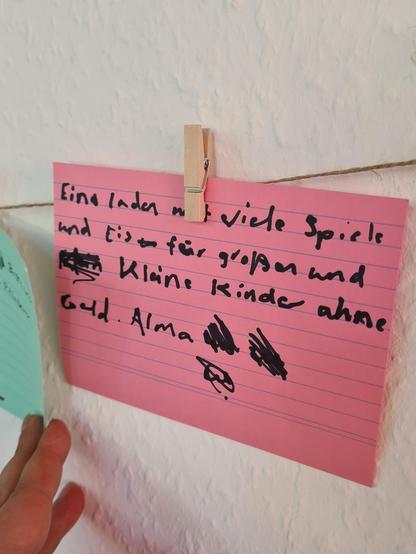 Eine laden viele Spiele
und Eis für großen und
Kleine Kinder ahne
Geld. Alma